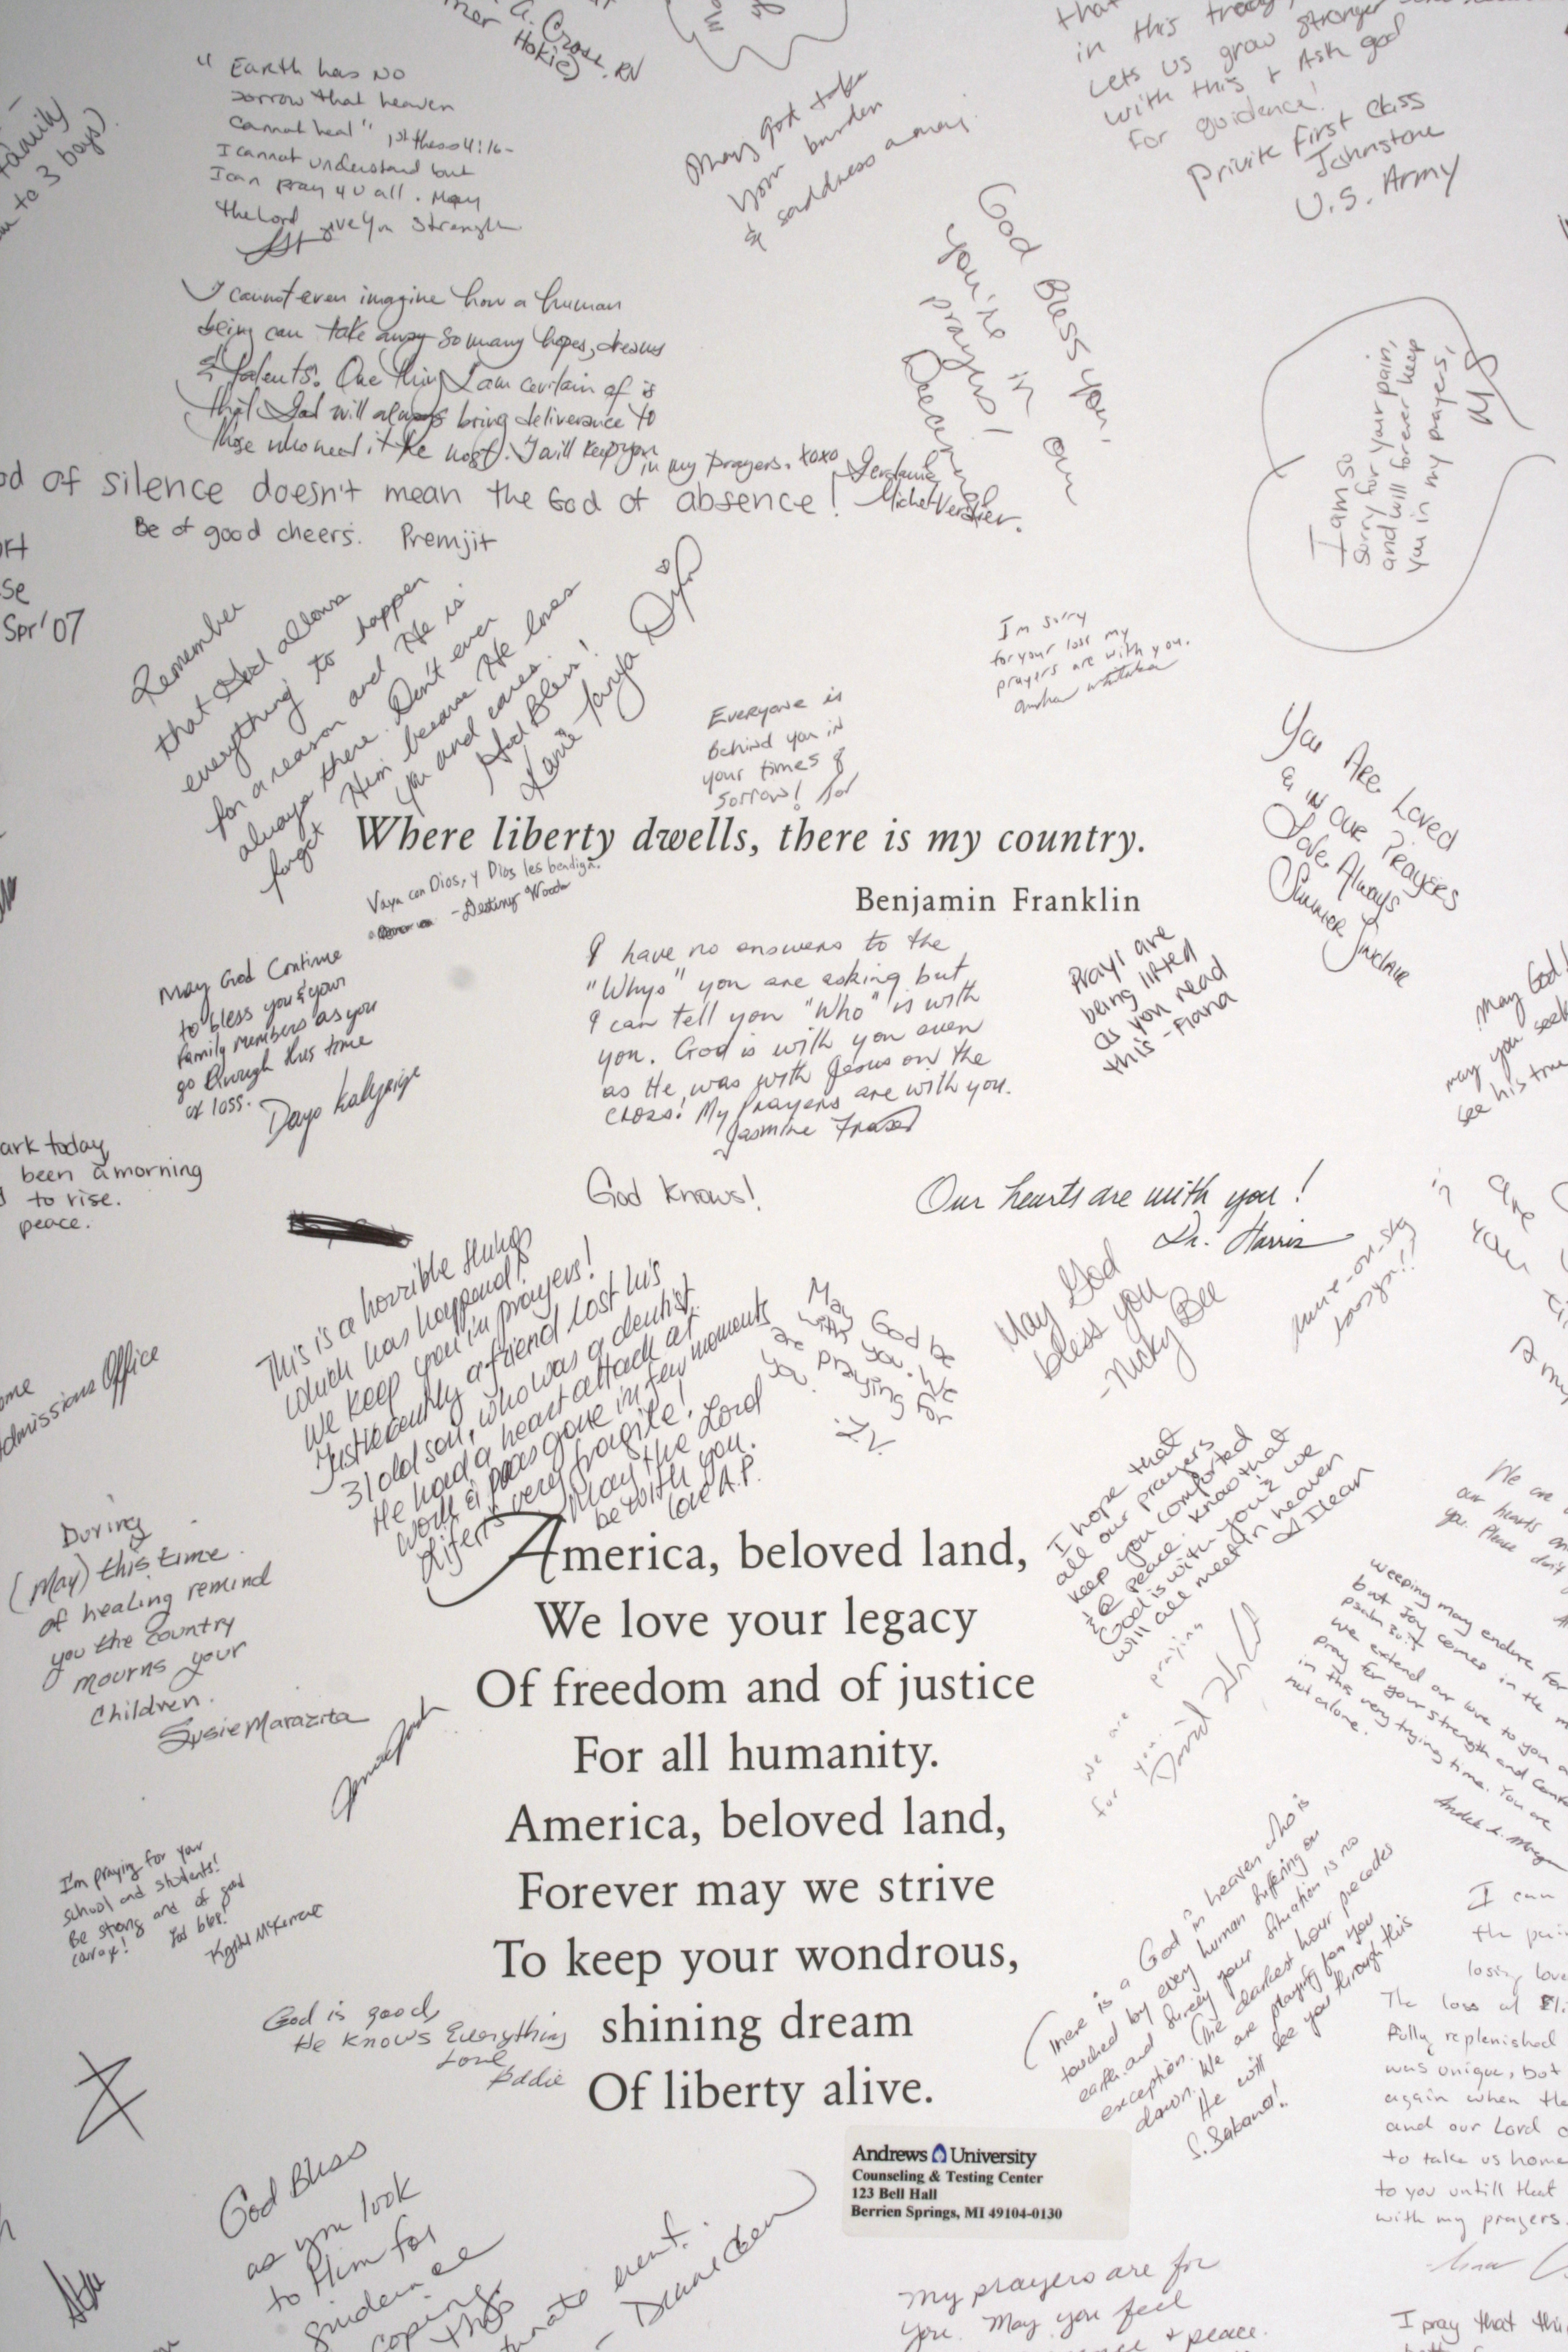 A. Crose, RN
Hokie)
"Earth has no
sorrow that heaven
cannot heal" 1st thess 4:16-
I cannot understand but
I can pray 4 U all. May
the Lord give you strength
family
to 3 boys).
May God take
your burden
& saddness away.
in this
Lets us grow stronger
with this & Ask god
for guidence!
Private First Class
Johnstone
U.S. Army
God Bless you,
you're in our
prayers!
I cannot even imagine how a human
being can take away so many hopes, dreams
& talents. One thing I am certain of is
that God will always bring deliverance to
those who need it the most. I will keep you
in my prayers. xoxo
Michel-Verdier.
I am so
sorry for your pain,
and will forever keep
you in my prayers,
MS
od of silence doesn't mean the God of absence!
Be of good cheers. Premjit
Spr '07
Remember
that God allows
everything to happen
for a reason and He is
always there. Don't ever
forget Him because He loves
you and cares.
God Bless!
I'm sorry
for your loss my
prayers are with you.
Everyone is
behind you in
your times of
sorrow!
You Are Loved
& in our Prayers
Love Always
Summer Sinclair
Where liberty dwells, there is my country.
Benjamin Franklin
Vaya con Dios, y Dios les bendiga.
-Destiny Woods
May God Continue
to bless you & your
family members as you
go through this time
of loss.
I have no answers to the
"Whys" you are asking but
I can tell you "Who" is with
you. God is with you even
as He was with Jesus on the
cross! My Prayers are with you.
Jasmine Fraser
being lifted
as you read
this
May God
may you seek
see his
ark today,
been a morning
to rise.
peace.
God knows!
Our hearts are with you!
Dr. Harris
This is a horrible things
which has happend!
We keep you in prayers!
Just recently a friend lost his
31 old son, who was a dentist.
He had a heart attack at
work & was gone in few moments
Life is very fragile!
May the Lord
be with you.
love A.P.
May God be
with you. We
are praying for
you.
May God
bless you
-Nicky Bee
Admissions Office
I hope that
all our prayers
keep you comforted
& @ peace. know that
God is with you & we
will all meet in heaven
During
(May) this time
of healing remind
you the country
mourns your
children.
Susie Marazita
America, beloved land,
We love your legacy
Of freedom and of justice
For all humanity.
America, beloved land,
Forever may we strive
To keep your wondrous,
shining dream
Of liberty alive.
we are praying
for you.
David
We are
our hearts
you. Please don't
weeping may endure for
but joy comes in the
psalm 30:5
we extend our love to you
pray for your strength and
in this very trying time. You are
not alone.
I'm praying for you
school and students!
Be strong and of good
God is good,
He knows Everything
Love
Eddie
There is a God in heaven who is
touched by every human suffering on
earth and surely your situation is no
exception. The darkest hour precedes
dawn. We are praying for you
He will see you through this
I can
the pain
losing love
The loss of
fully replenished
was unique, but
again when the
and our Lord
to take us home
to you untill that
with my prayers.
Andrews University
Counseling & Testing Center
123 Bell Hall
Berrien Springs, MI 49104-0130
God Bless
as you look
to Him for
guidence
coping
event.
My prayers are for
you. May you feel
& peace.
I pray that this